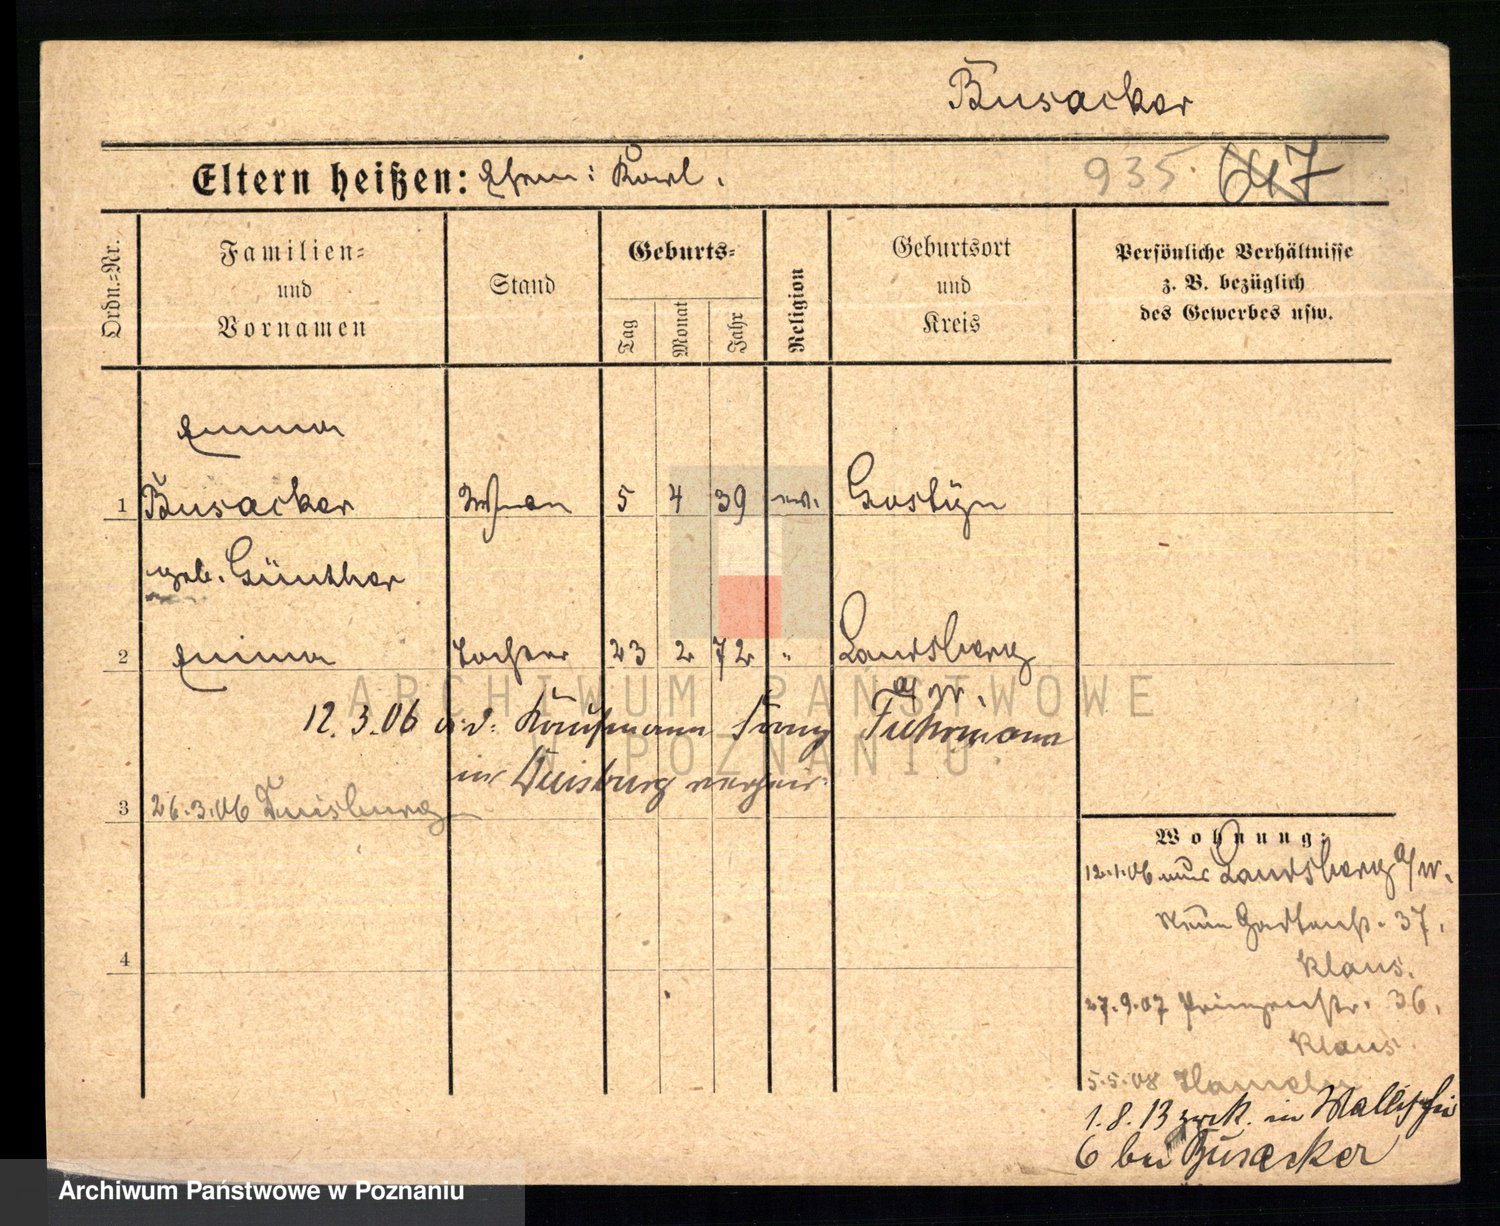 Busacker
Eltern heißen: Ehem: Karl.
935. 617
Ordn.-Nr.
Familien-
und
Vornamen
Stand
Geburts-
Tag
Monat
Jahr
Religion
Geburtsort
und
Kreis
Persönliche Verhältnisse
z. B. bezüglich
des Gewerbes usw.
Emma
1 Busacker Wwe 5 4 39 ev. Gostyn
geb. Günther
2 Emma Tochter 23 2 72 " Landsberg
a/W.
12.3.06 a.d. Kaufmann Franz Fuhrmann
in Duisburg verheir.
3 26.3.06 Duisburg
4
Wohnung:
12.1.06 aus Landsberg a/W.
Neue Gartenstr. 37.
Klaus.
27.9.07 Prinzenstr. 36.
Klaus.
5.5.08 Hameln
1.8.13 zrck. in
6 bei Busacker
ARCHIWUM PAŃSTWOWE
W POZNANIU
Archiwum Państwowe w Poznaniu